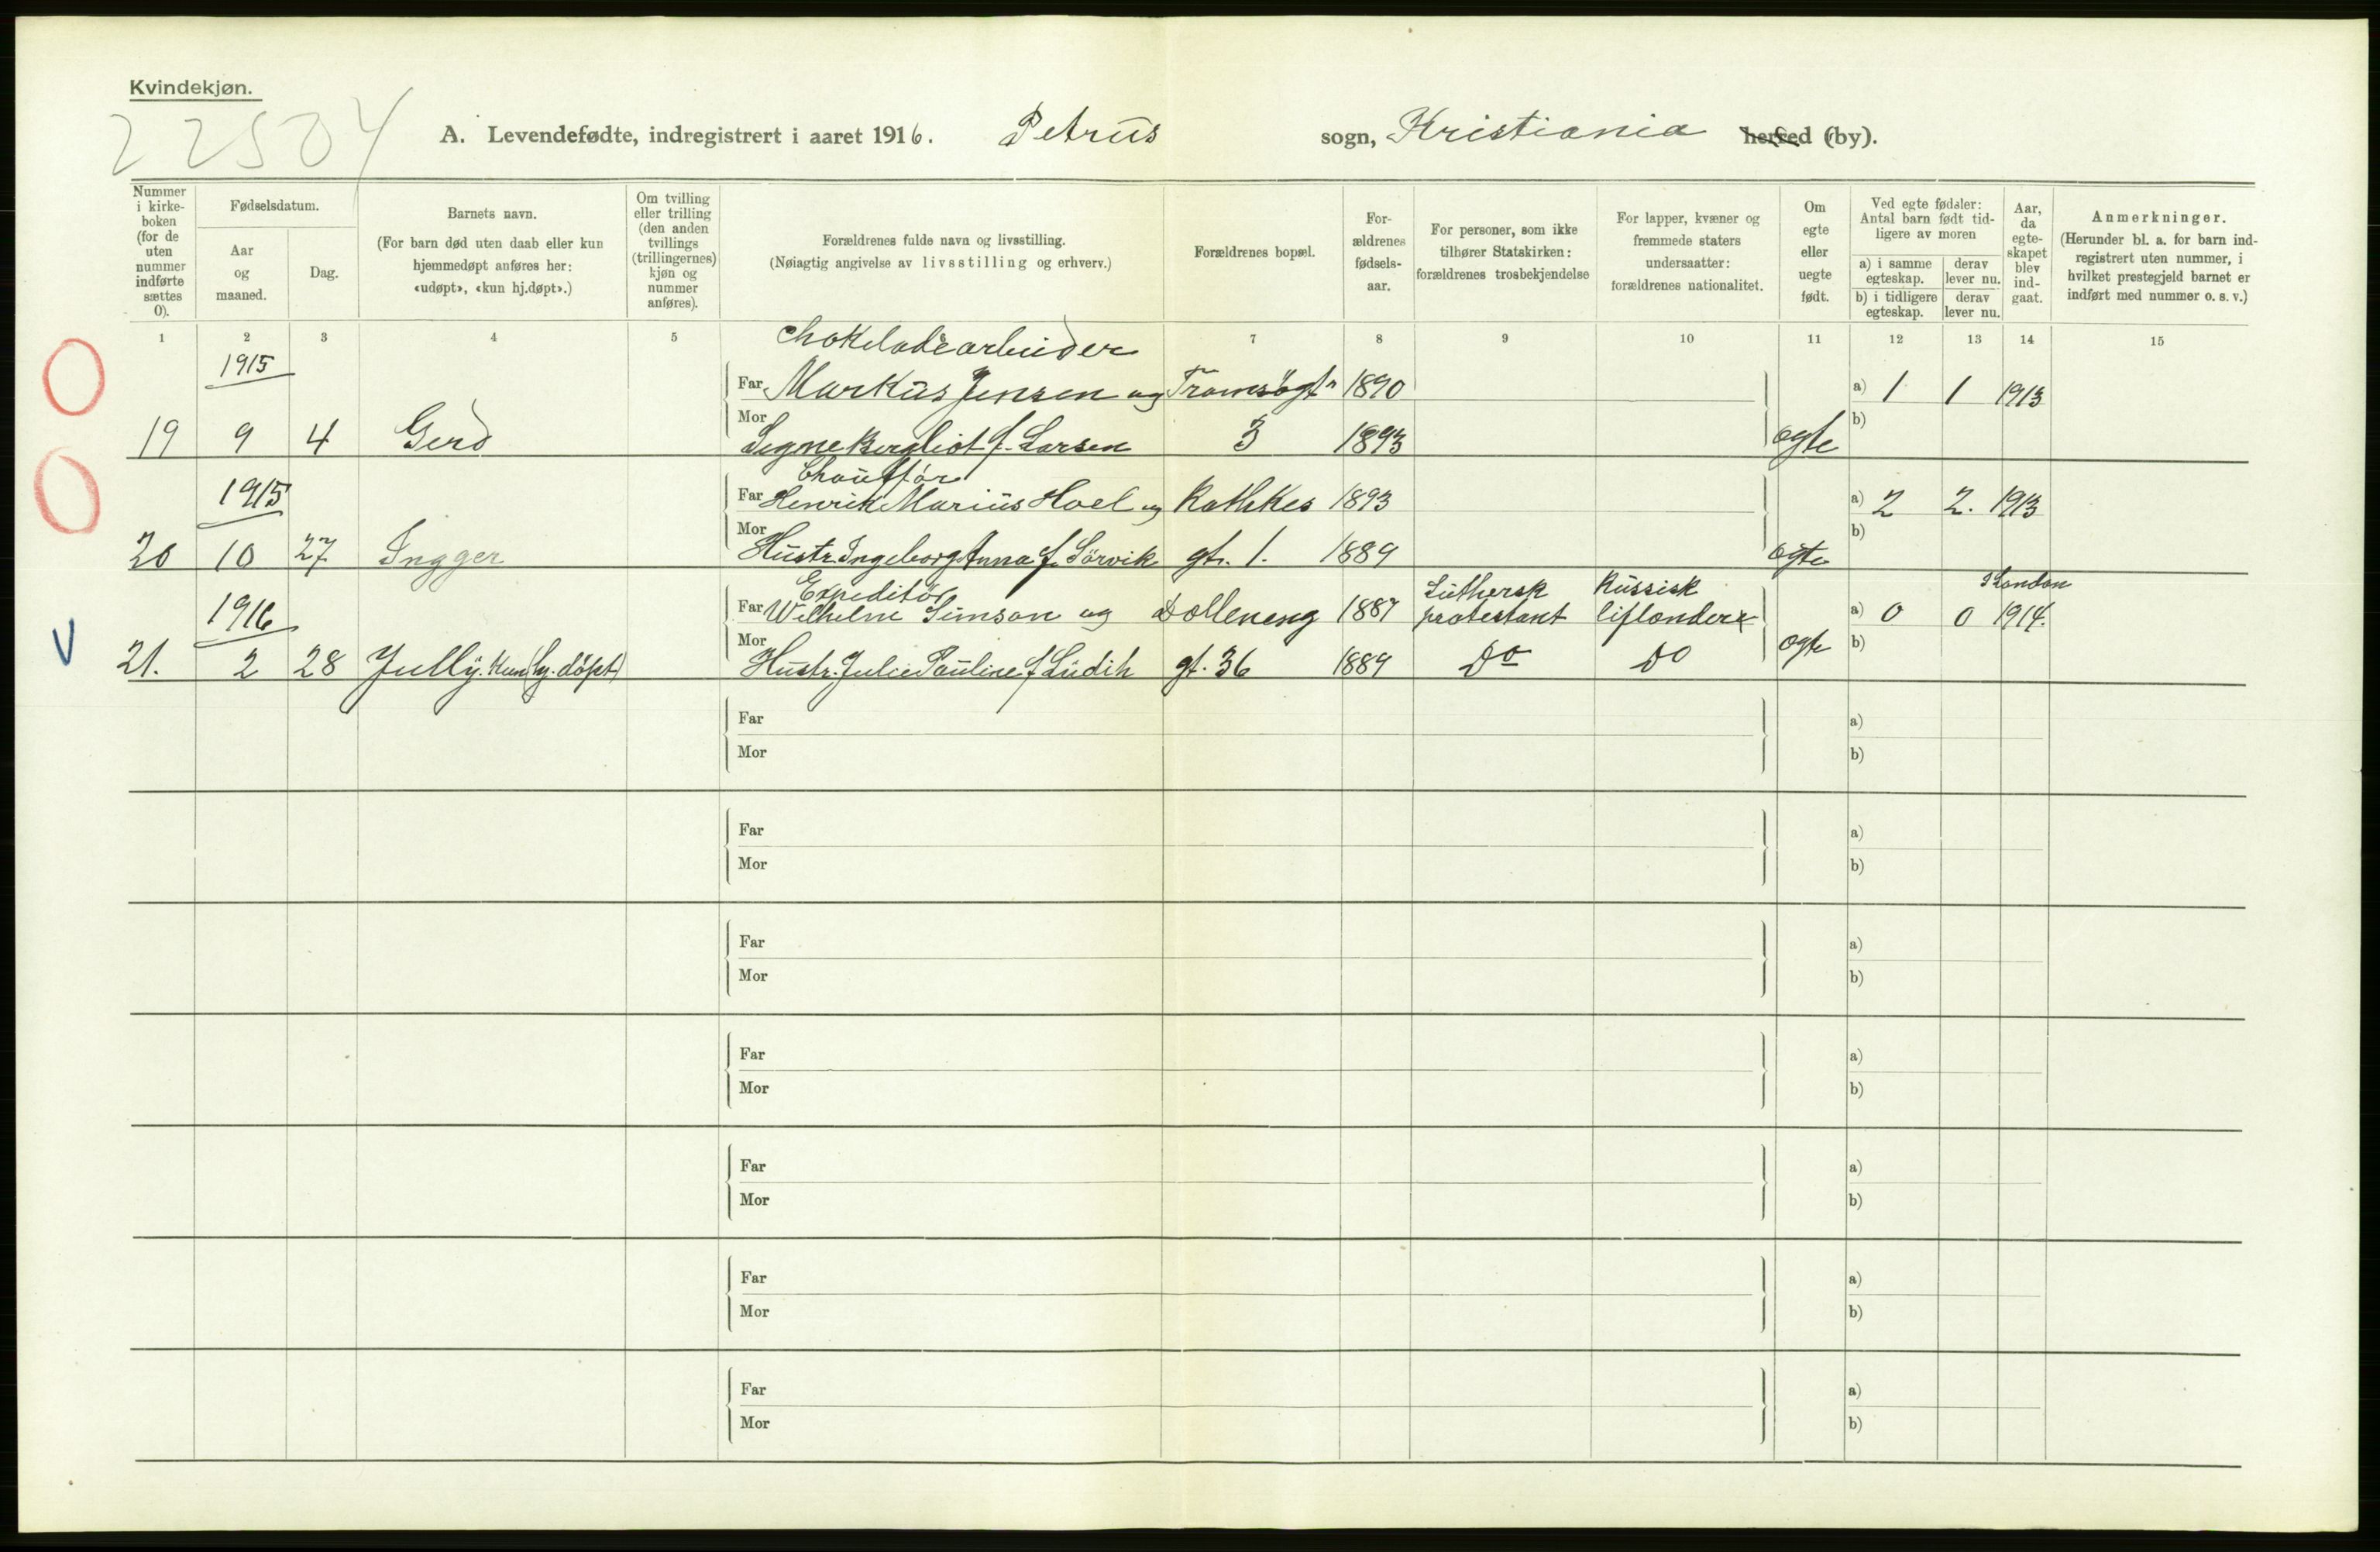 Kvindekjøn.
22504
A. Levendefødte, indregistrert i aaret 1916. Petrus sogn, Kristiania herred (by).
Nummer i kirkeboken (for de uten nummer indførte sættes 0).
Fødselsdatum.
Aar og maaned.
Dag.
Barnets navn.
(For barn død uten daab eller kun hjemmedøpt anføres her: «udøpt», «kun hj.døpt».)
Om tvilling eller trilling (den anden tvillings (trillingernes) kjøn og nummer anføres).
Forældrenes fulde navn og livsstilling.
(Nøiagtig angivelse av livsstilling og erhverv.)
Forældrenes bopæl.
Forældrenes fødselsaar.
For personer, som ikke tilhører Statskirken: forældrenes trosbekjendelse
For lapper, kvæner og fremmede staters undersaatter: forældrenes nationalitet.
Om egte eller uegte født.
Ved egte fødsler: Antal barn født tidligere av moren
a) i samme egteskap. derav lever nu.
b) i tidligere egteskap. derav lever nu.
Aar, da egteskapet blev indgaat.
Anmerkninger.
(Herunder bl. a. for barn indregistrert uten nummer, i hvilket prestegjeld barnet er indført med nummer o. s. v.)
1 2 3 4 5 7 8 9 10 11 12 13 14 15
Chokeladearbeider
1915 Far Markus Jensen og Tromsøgt. 1890 a) 1 1 1913
19 9 4 Gerd Mor Signe Bergliot f. Larsen 3 1893 egte b)
Chauffør
1915 Far Henrik Marius Hoel og Rathkes 1893 a) 2 2. 1913
20 10 27 Ingger Mor Hustr. Ingeborg Anna f. Sörvik gt. 1. 1889 egte b)
Expeditör Luthersk Russisk I London
1916 Far Wilhelm Simson og Dælleneng 1887 protestant liflender a) 0 0 1914.
V 21. 2 28 Jully. Kun (hj. döpt) Mor Hustr. Julie Pauline f Ludih gt. 36 1889 Do Do egte b)
Far a)
Mor b)
Far a)
Mor b)
Far a)
Mor b)
Far a)
Mor b)
Far a)
Mor b)
Far a)
Mor b)
Far a)
Mor b)